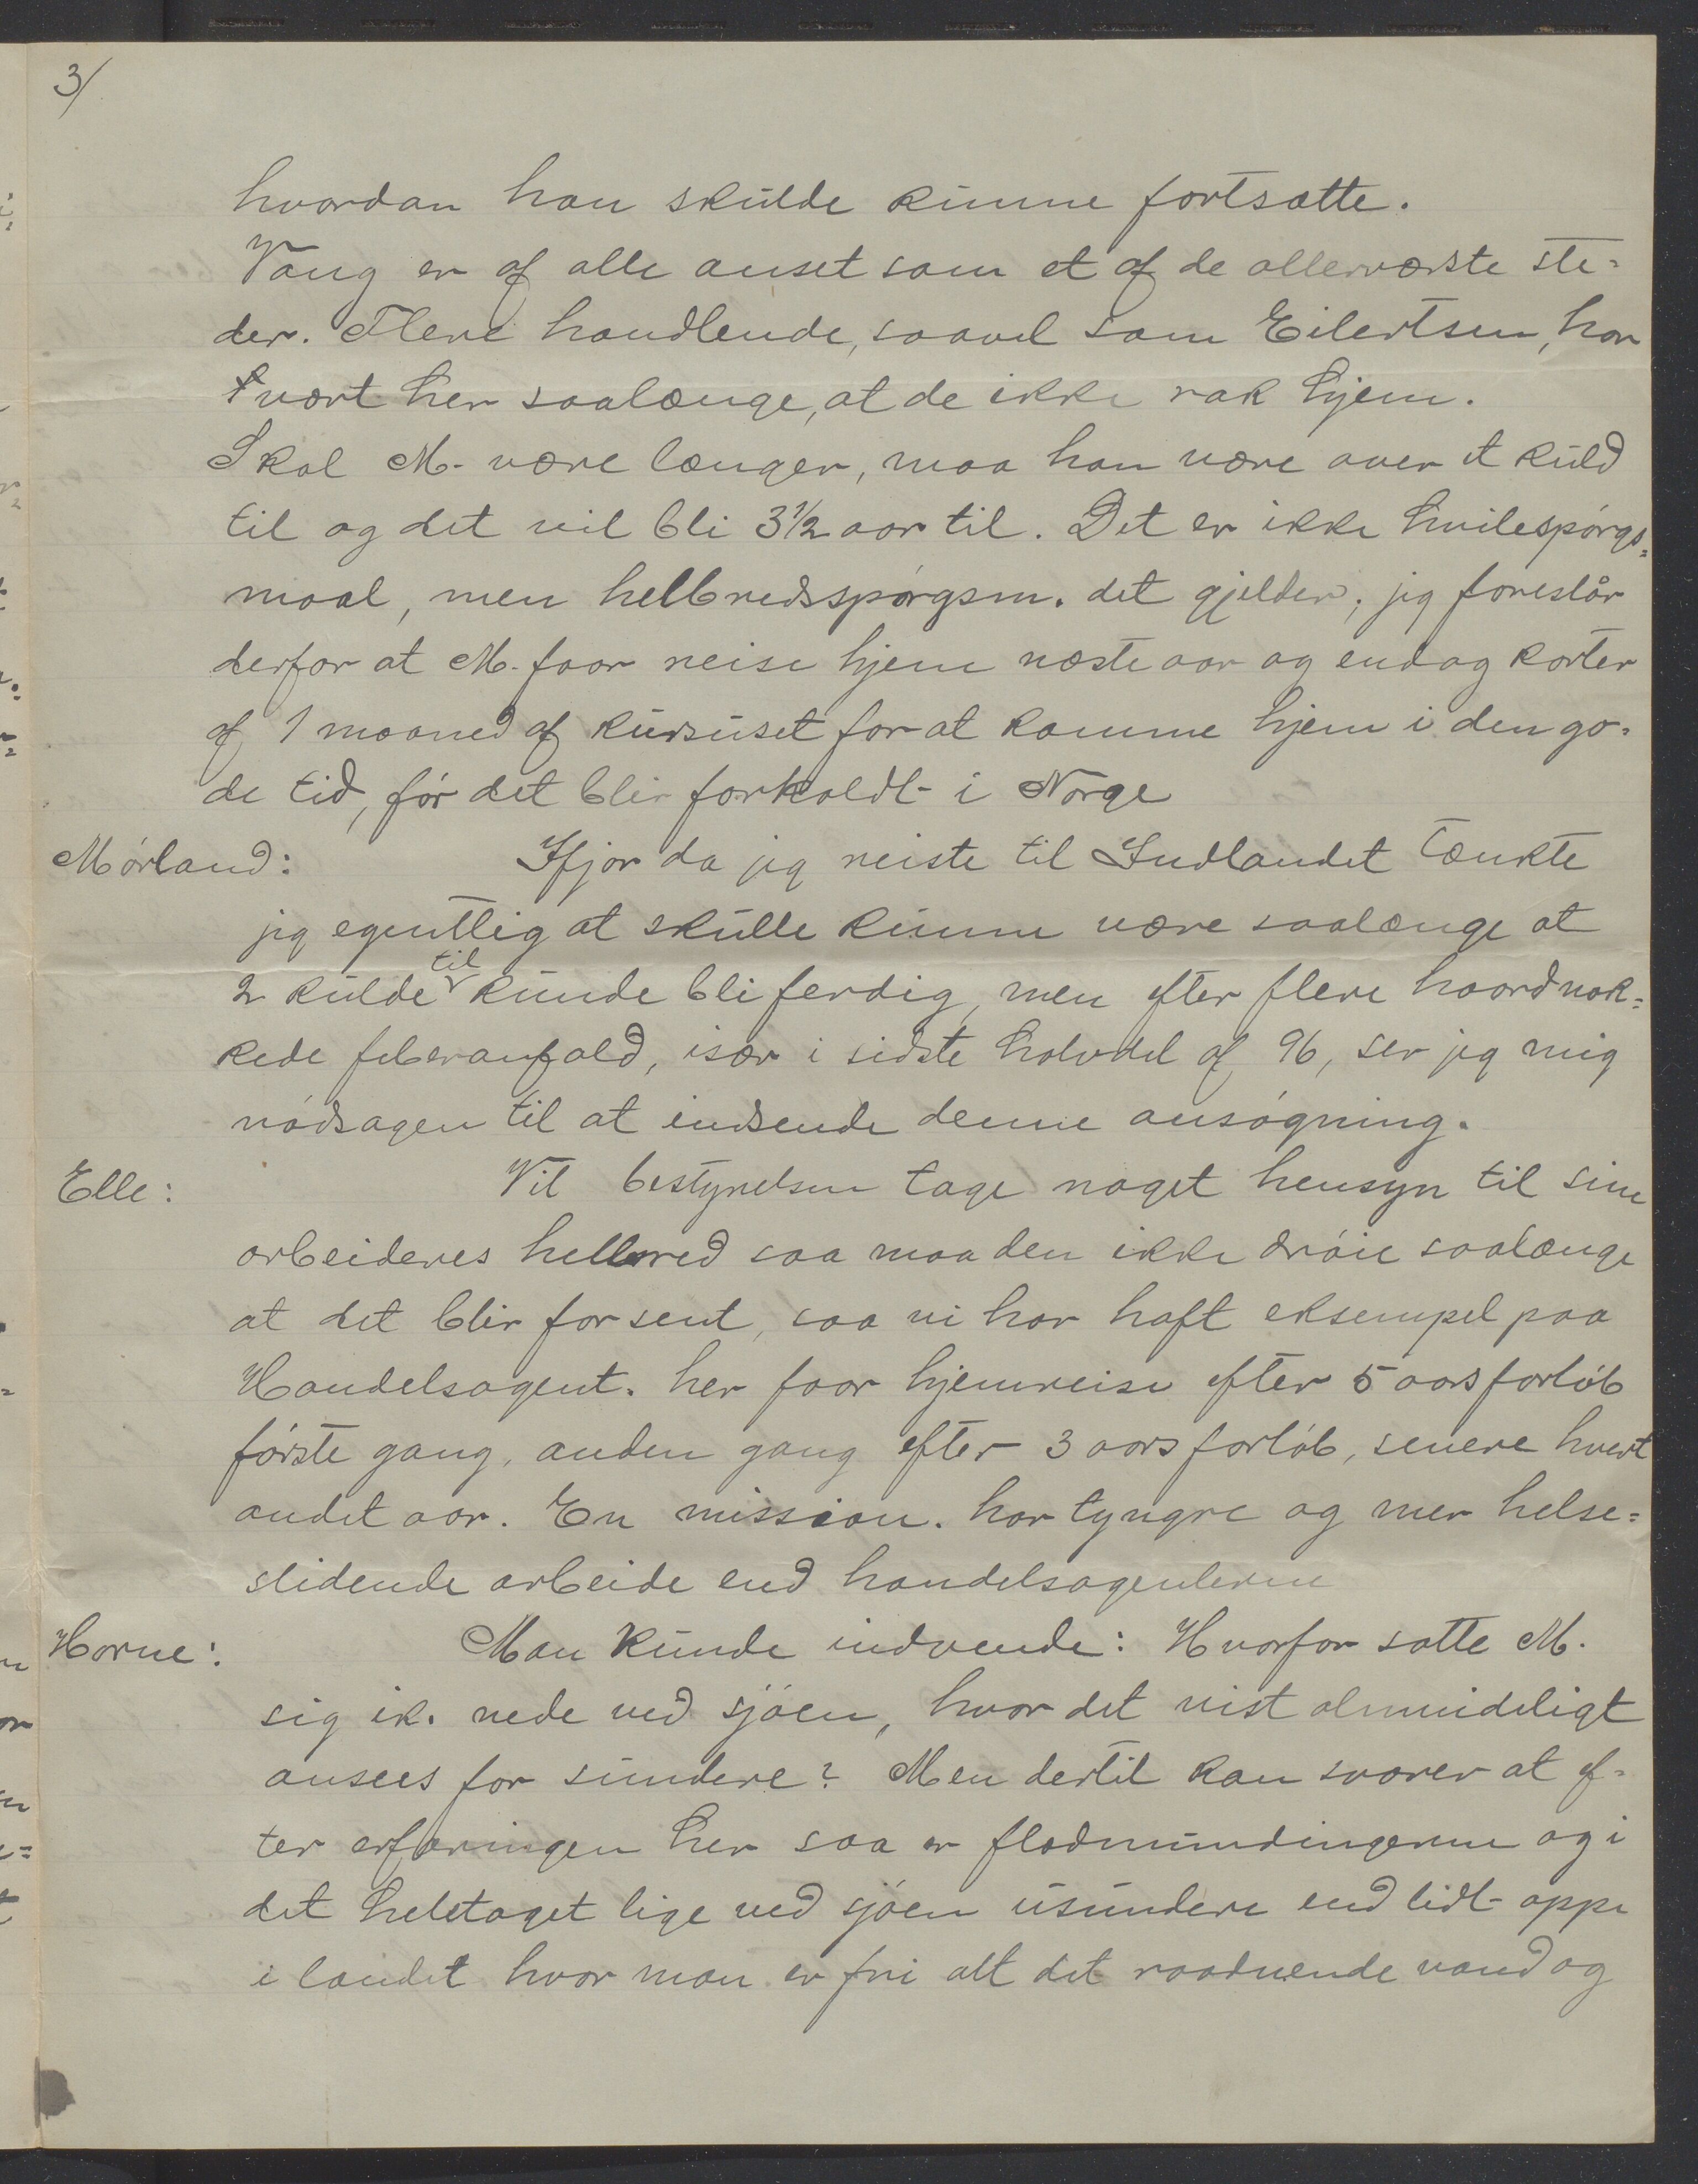 3/
hvordan han skulde kunne fortsætte.
Vang er af alle anset som et af de allerværste ste=
der. Flere handlende, saavel som Eilertsen, har
vært her saalænge, at de ikke rak hjem.
Skal M. være længer, maa han være over et kuld
til og det vil bli 3½ aar til. Det er ikke hvilespørgs=
maal, men helbredsspørgsm. det gjelder; jeg foreslår
derfor at M. faar reise hjem næste aar og endog korter
af 1 maaned af kursuset for at komme hjem i den go=
de tid, før det blir forkoldt i Norge
Mørland: Ifjor da jeg reiste til Indlandet tænkte
jeg egentlig at skulle kunne være saalænge at
2 kulde til kunde bli ferdig, men efter flere haardnak=
kede feberanfald, især i sidste halvdel af 96, ser jeg mig
nødsagen til at indsende denne ansøgning.
Elle: Vil bestyrelsen tage noget hensyn til sine
arbeideres hellbred saa maa den ikke drøie saalænge
at det blir forsent, saa vi har haft eksempel paa
Handelsagent. her faar hjemreise efter 5 aars forløb
første gang, anden gang efter 3 aars forløb, senere hvert
andet aar. En mission. har tyngre og mer helse=
slidende arbeide end handelsagenterne
Horne: Man kunde indvende: Hvorfor satte M.
sig ik. nede ved sjøen, hvor det vist almindeligt
ansees for sundere? Men dertil kan svares at ef=
ter erfaringen her saa er flodmundingerne og i
det heletaget lige ved sjøen usundere end lidt oppe
i landet hvor man er fri alt det raadnende vand og